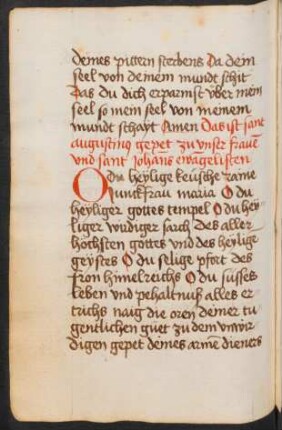 deines pittern sterbens Da dein
seel von deinem mundt schit
Das du dich erparmst vber mein
seel so mein seel von meinem
mundt schayt Amen Das ist sant
augustinus gepet zu vnser frauē
vnd sant Johans ewāgelisten
O du heylige keusche raine
Junckfrau maria O du
heyliger gottes tempel O du hey-
liger wirdiger sarch des aller
höchsten gottes und des heylige
geystes O du selige pfort des
fron himelreichs O du susses
leben vnd pehaltnuß alles er-
trichs naig die oren deiner tu-
gentlichen guet zu dem vnwir-
digen gepet deines armē dieners